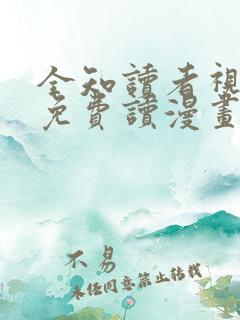 全知讀者視
免費讀漫畫
不易
未经同意禁止转载